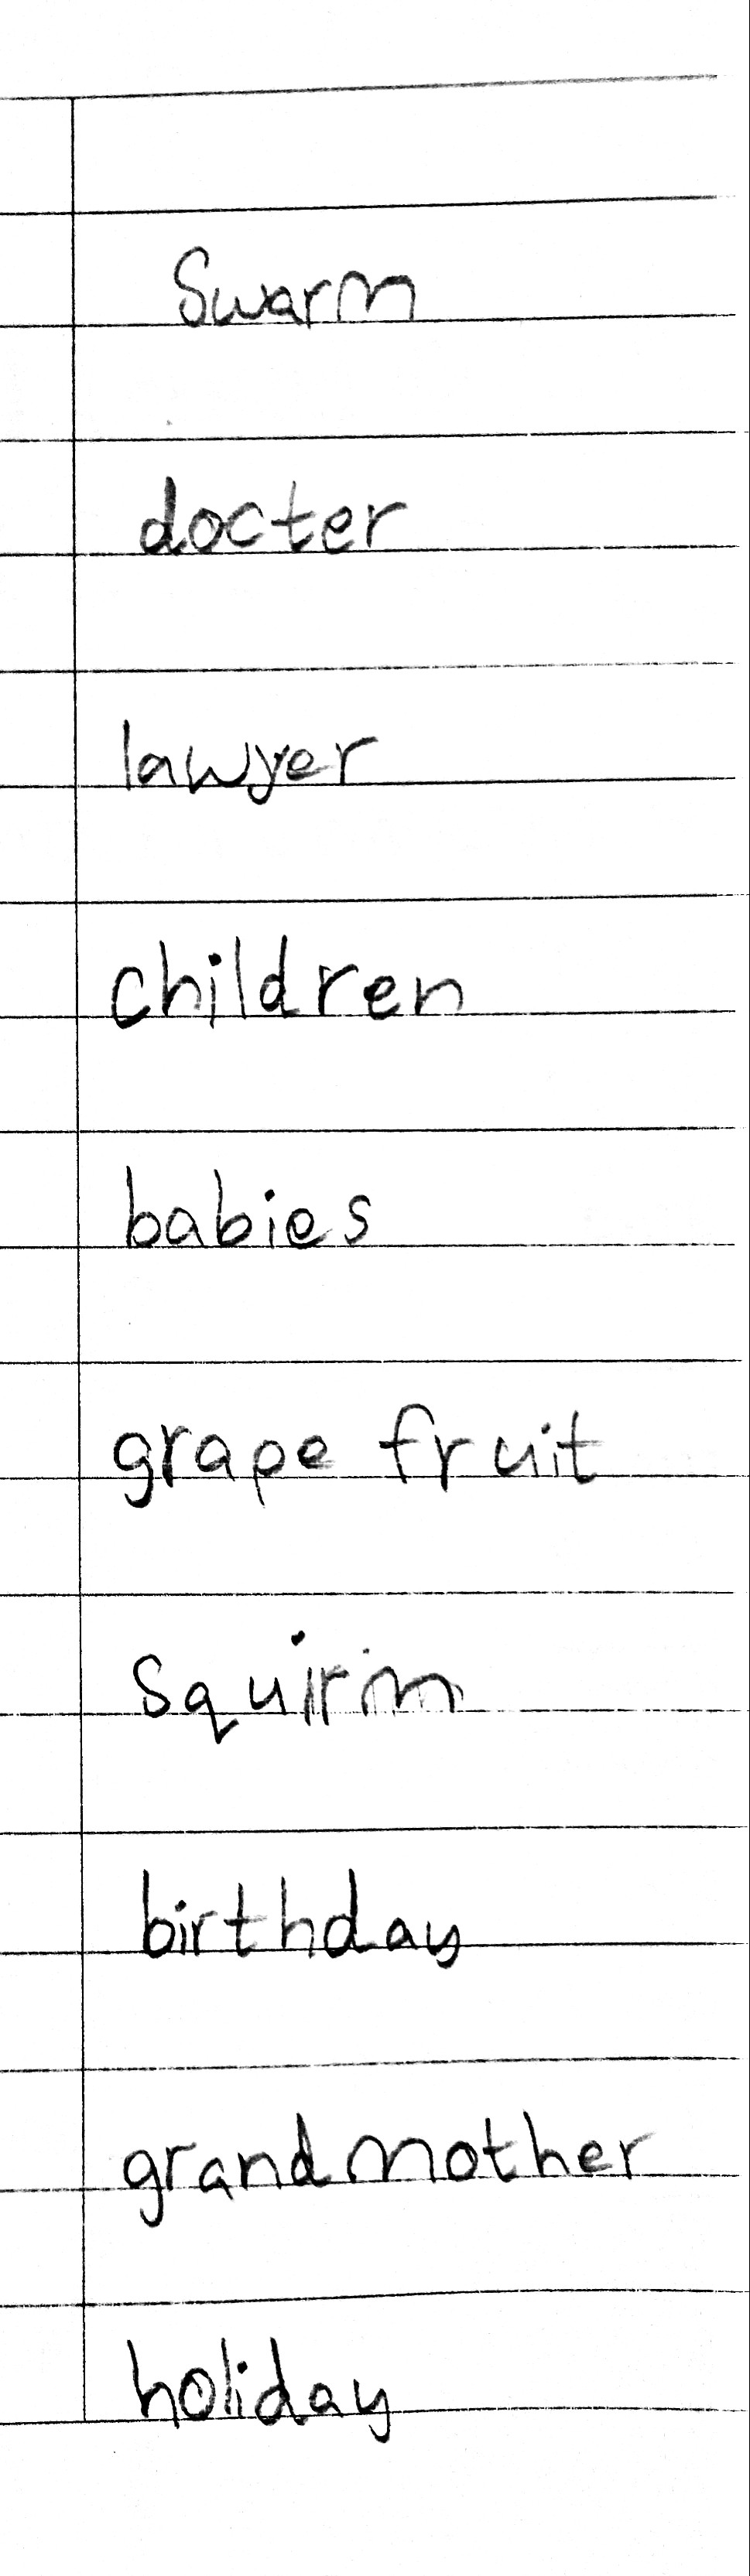 Swarm
docter
lawyer
children
babies
grape fruit
squirm
birthday
grandmother
holiday